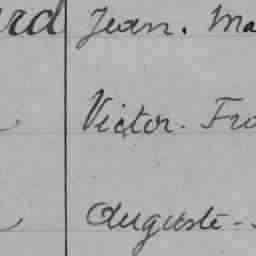 rd Jean. Ma
Victor. Fra
Auguste-